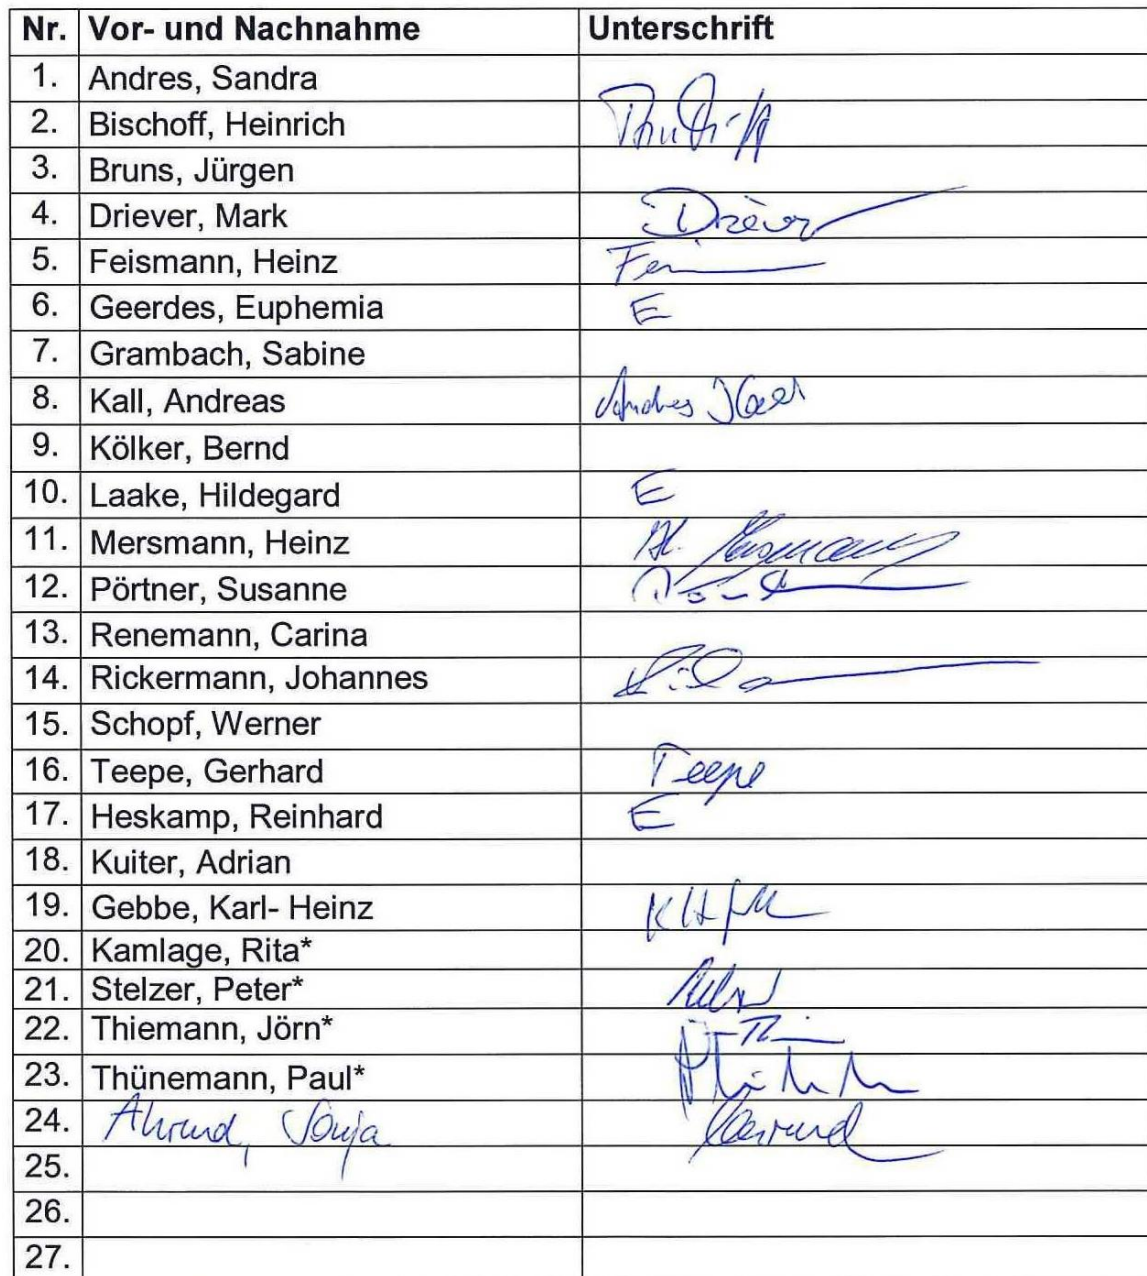 Nr. Vor- und Nachnahme Unterschrift
1. Andres, Sandra
2. Bischoff, Heinrich
3. Bruns, Jürgen
4. Driever, Mark Driever
5. Feismann, Heinz
6. Geerdes, Euphemia E
7. Grambach, Sabine
8. Kall, Andreas Andreas Kall
9. Kölker, Bernd
10. Laake, Hildegard E
11. Mersmann, Heinz H. Mersmann
12. Pörtner, Susanne
13. Renemann, Carina
14. Rickermann, Johannes
15. Schopf, Werner
16. Teepe, Gerhard Teepe
17. Heskamp, Reinhard E
18. Kuiter, Adrian
19. Gebbe, Karl- Heinz
20. Kamlage, Rita*
21. Stelzer, Peter*
22. Thiemann, Jörn*
23. Thünemann, Paul*
24. Ahrend, Sonja Ahrend
25.
26.
27.